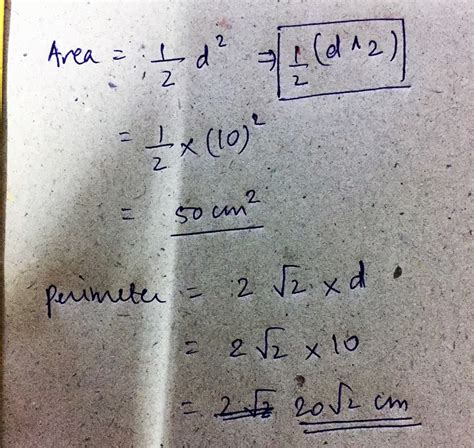 Area = 1/2 d² ⇒ 1/2 (d ^ 2)
= 1/2 × (10)²
= 50 cm²
perimeter = 2 √2 × d
= 2 √2 × 10
= 2√2 20√2 cm